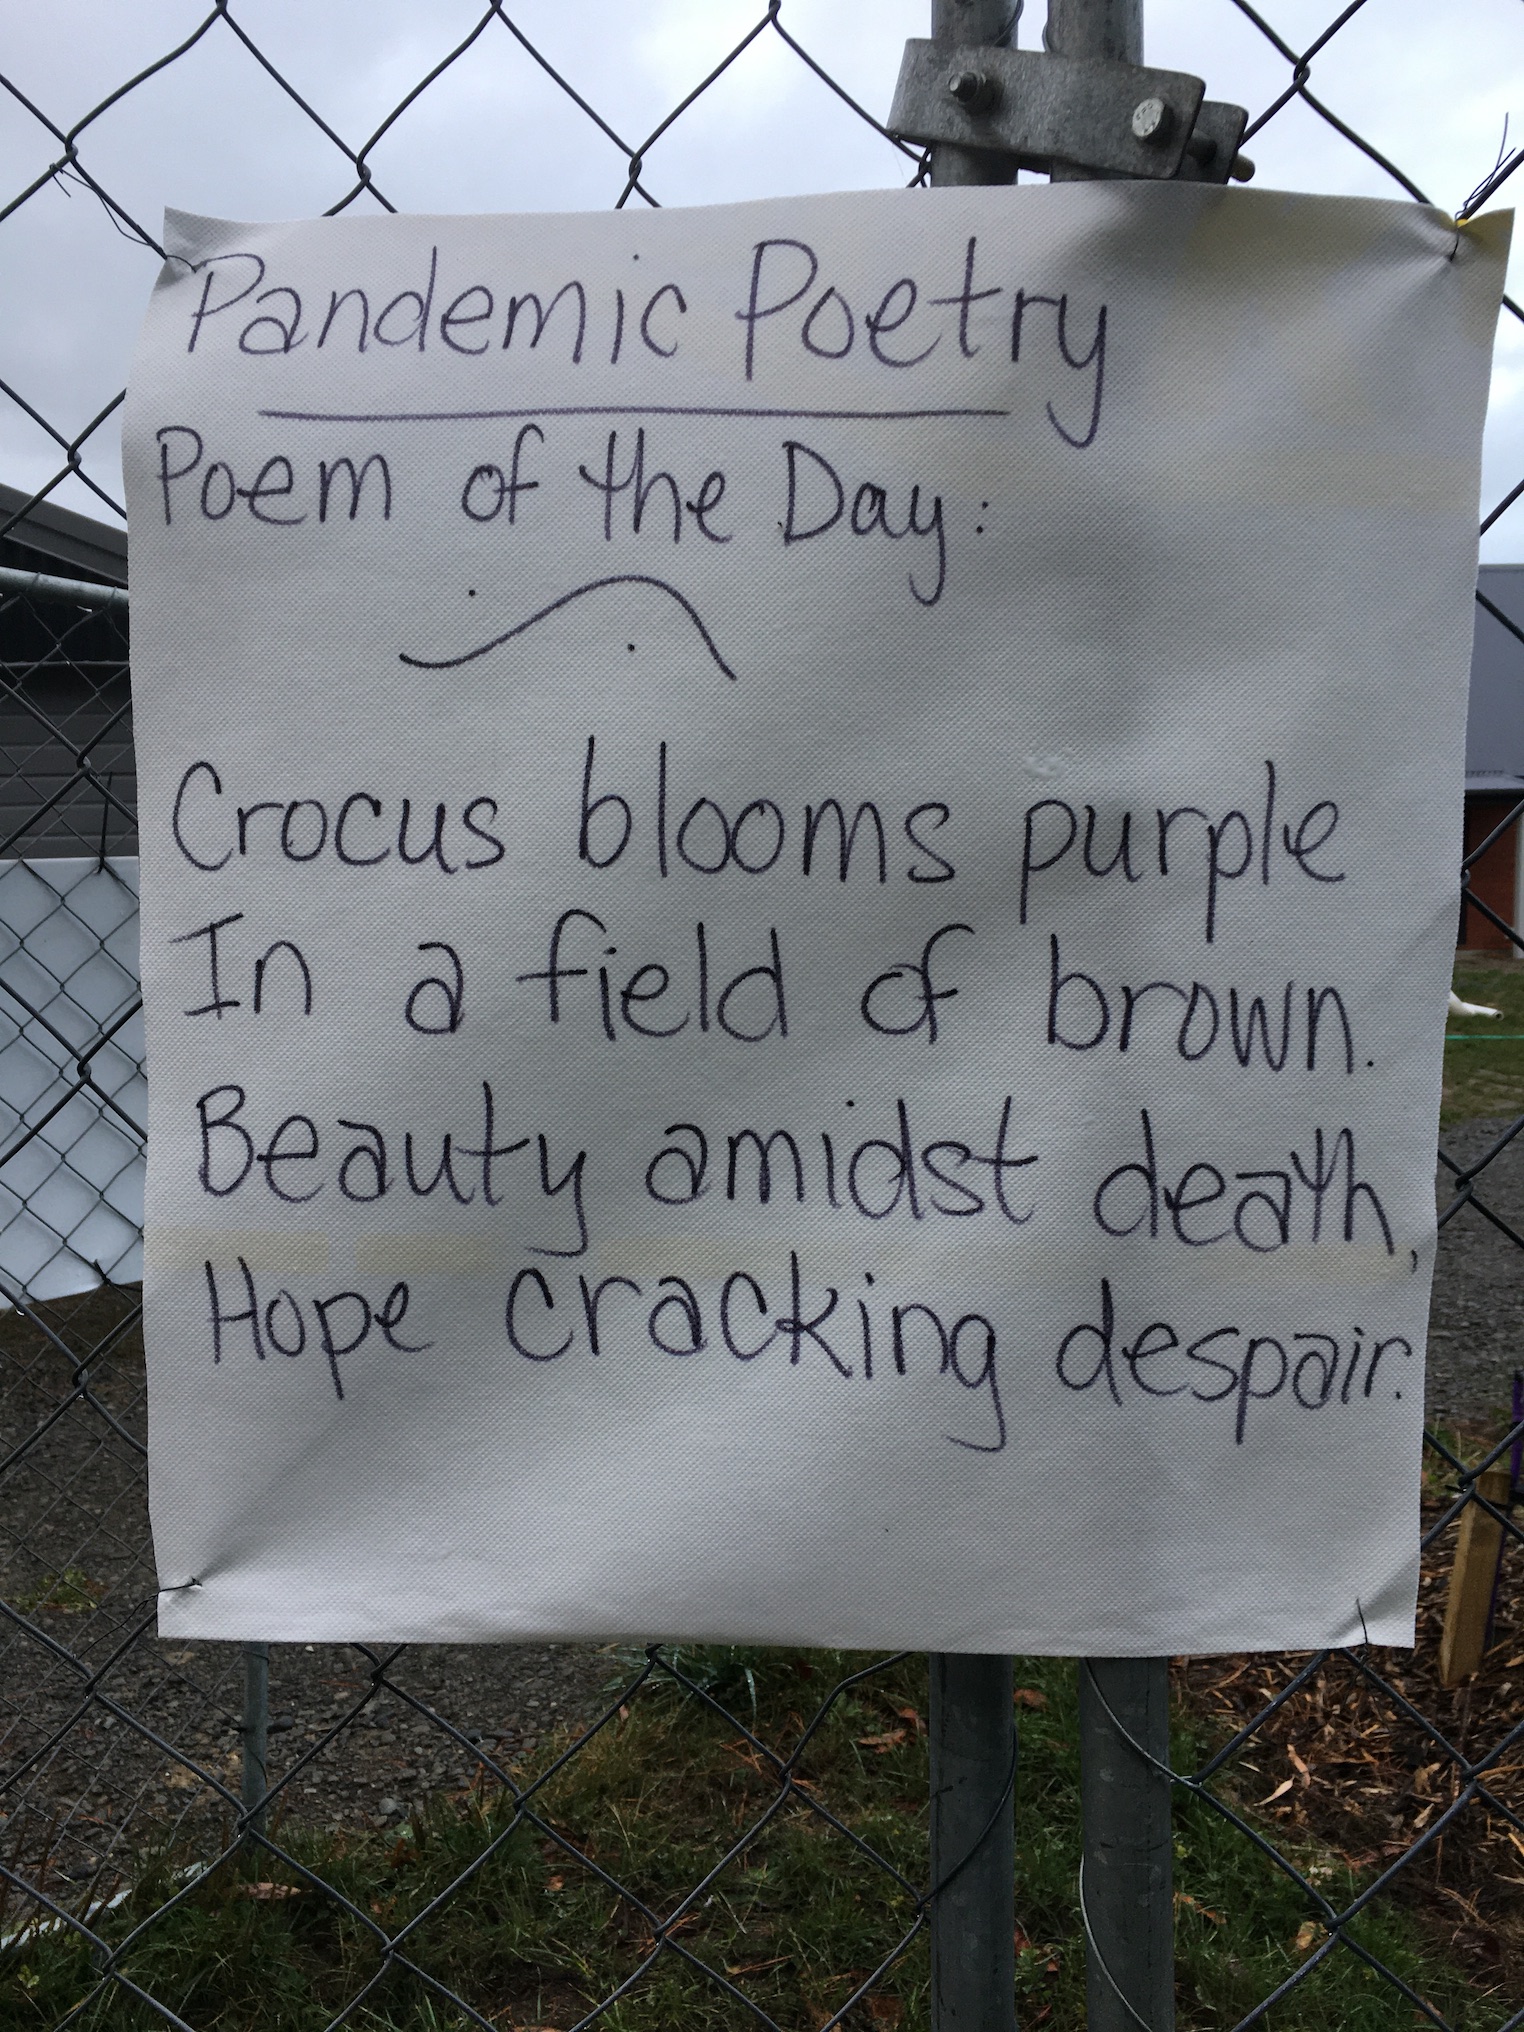 Pandemic Poetry
Poem of the Day:
Crocus blooms purple
In a field of brown.
Beauty amidst death,
Hope cracking despair.